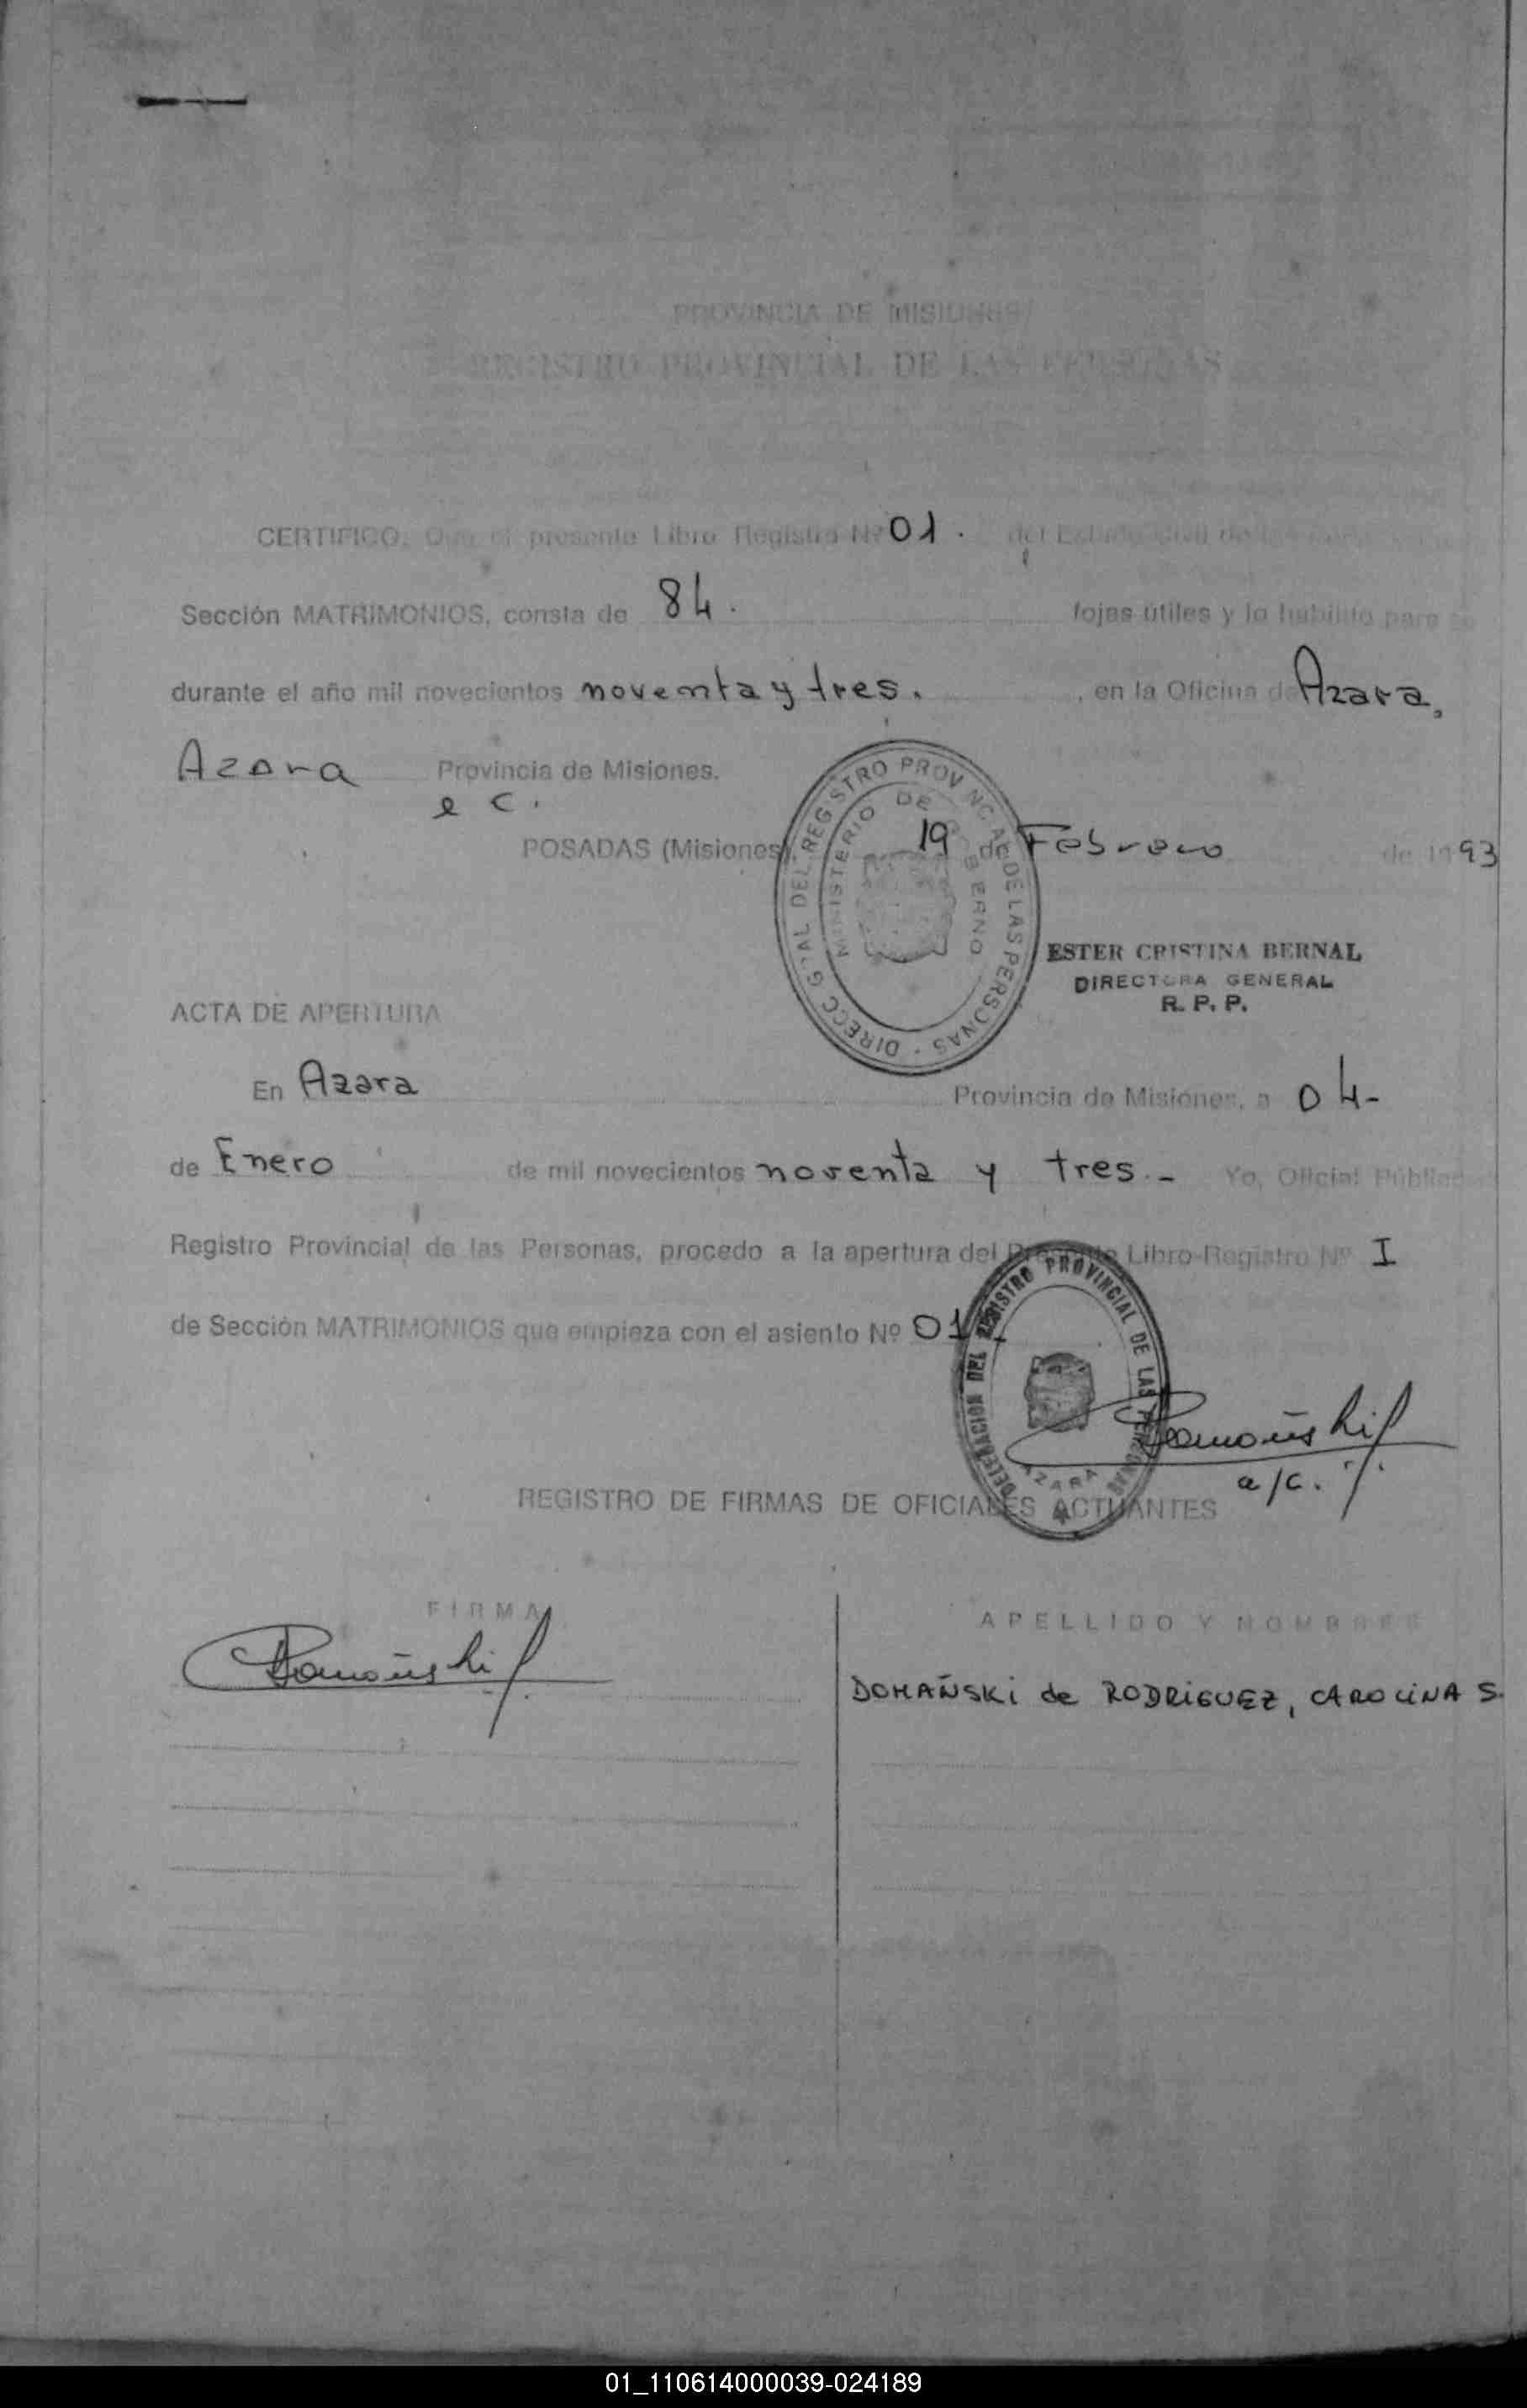 PROVINCIA DE MISIONES
REGISTRO PROVINCIAL DE LAS PERSONAS
CERTIFICO: Que el presente Libro Registro Nº 01. del Estado Civil de las
Sección MATRIMONIOS, consta de 84. fojas útiles y lo habilito para su
durante el año mil novecientos noventa y tres. , en la Oficina de Azara,
Azara Provincia de Misiones.
e c.
POSADAS (Misiones), 19 de Febrero de 1993
DIRECC. GRAL DEL REGISTRO PROVINCIAL DE LAS PERSONAS
MINISTERIO DE GOBIERNO
ESTER CRISTINA BERNAL
DIRECTORA GENERAL
R. P. P.
ACTA DE APERTURA
En Azara Provincia de Misiones, a 04-
de Enero de mil novecientos noventa y tres.- Yo, Oficial Público
Registro Provincial de las Personas, procedo a la apertura del Presente Libro-Registro Nº I
de Sección MATRIMONIOS que empieza con el asiento Nº 01-
DELEGACION DEL REGISTRO PROVINCIAL DE LAS PERSONAS
AZARA
Domañski
a/c.
REGISTRO DE FIRMAS DE OFICIALES ACTUANTES
FIRMA APELLIDO Y NOMBRES
Domañski DOMAÑSKi de RODRiGUEZ, CAROLiNA S.
01_110614000039-024189